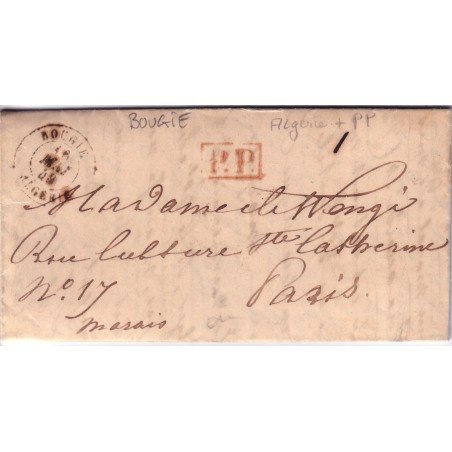 BOUGIE Algerie + PP
BOUGIE
16
MAI
ALGERIE
P.P.
Madame de Wengi
Rue Culture Ste Catherine
No. 17 Paris.
marais